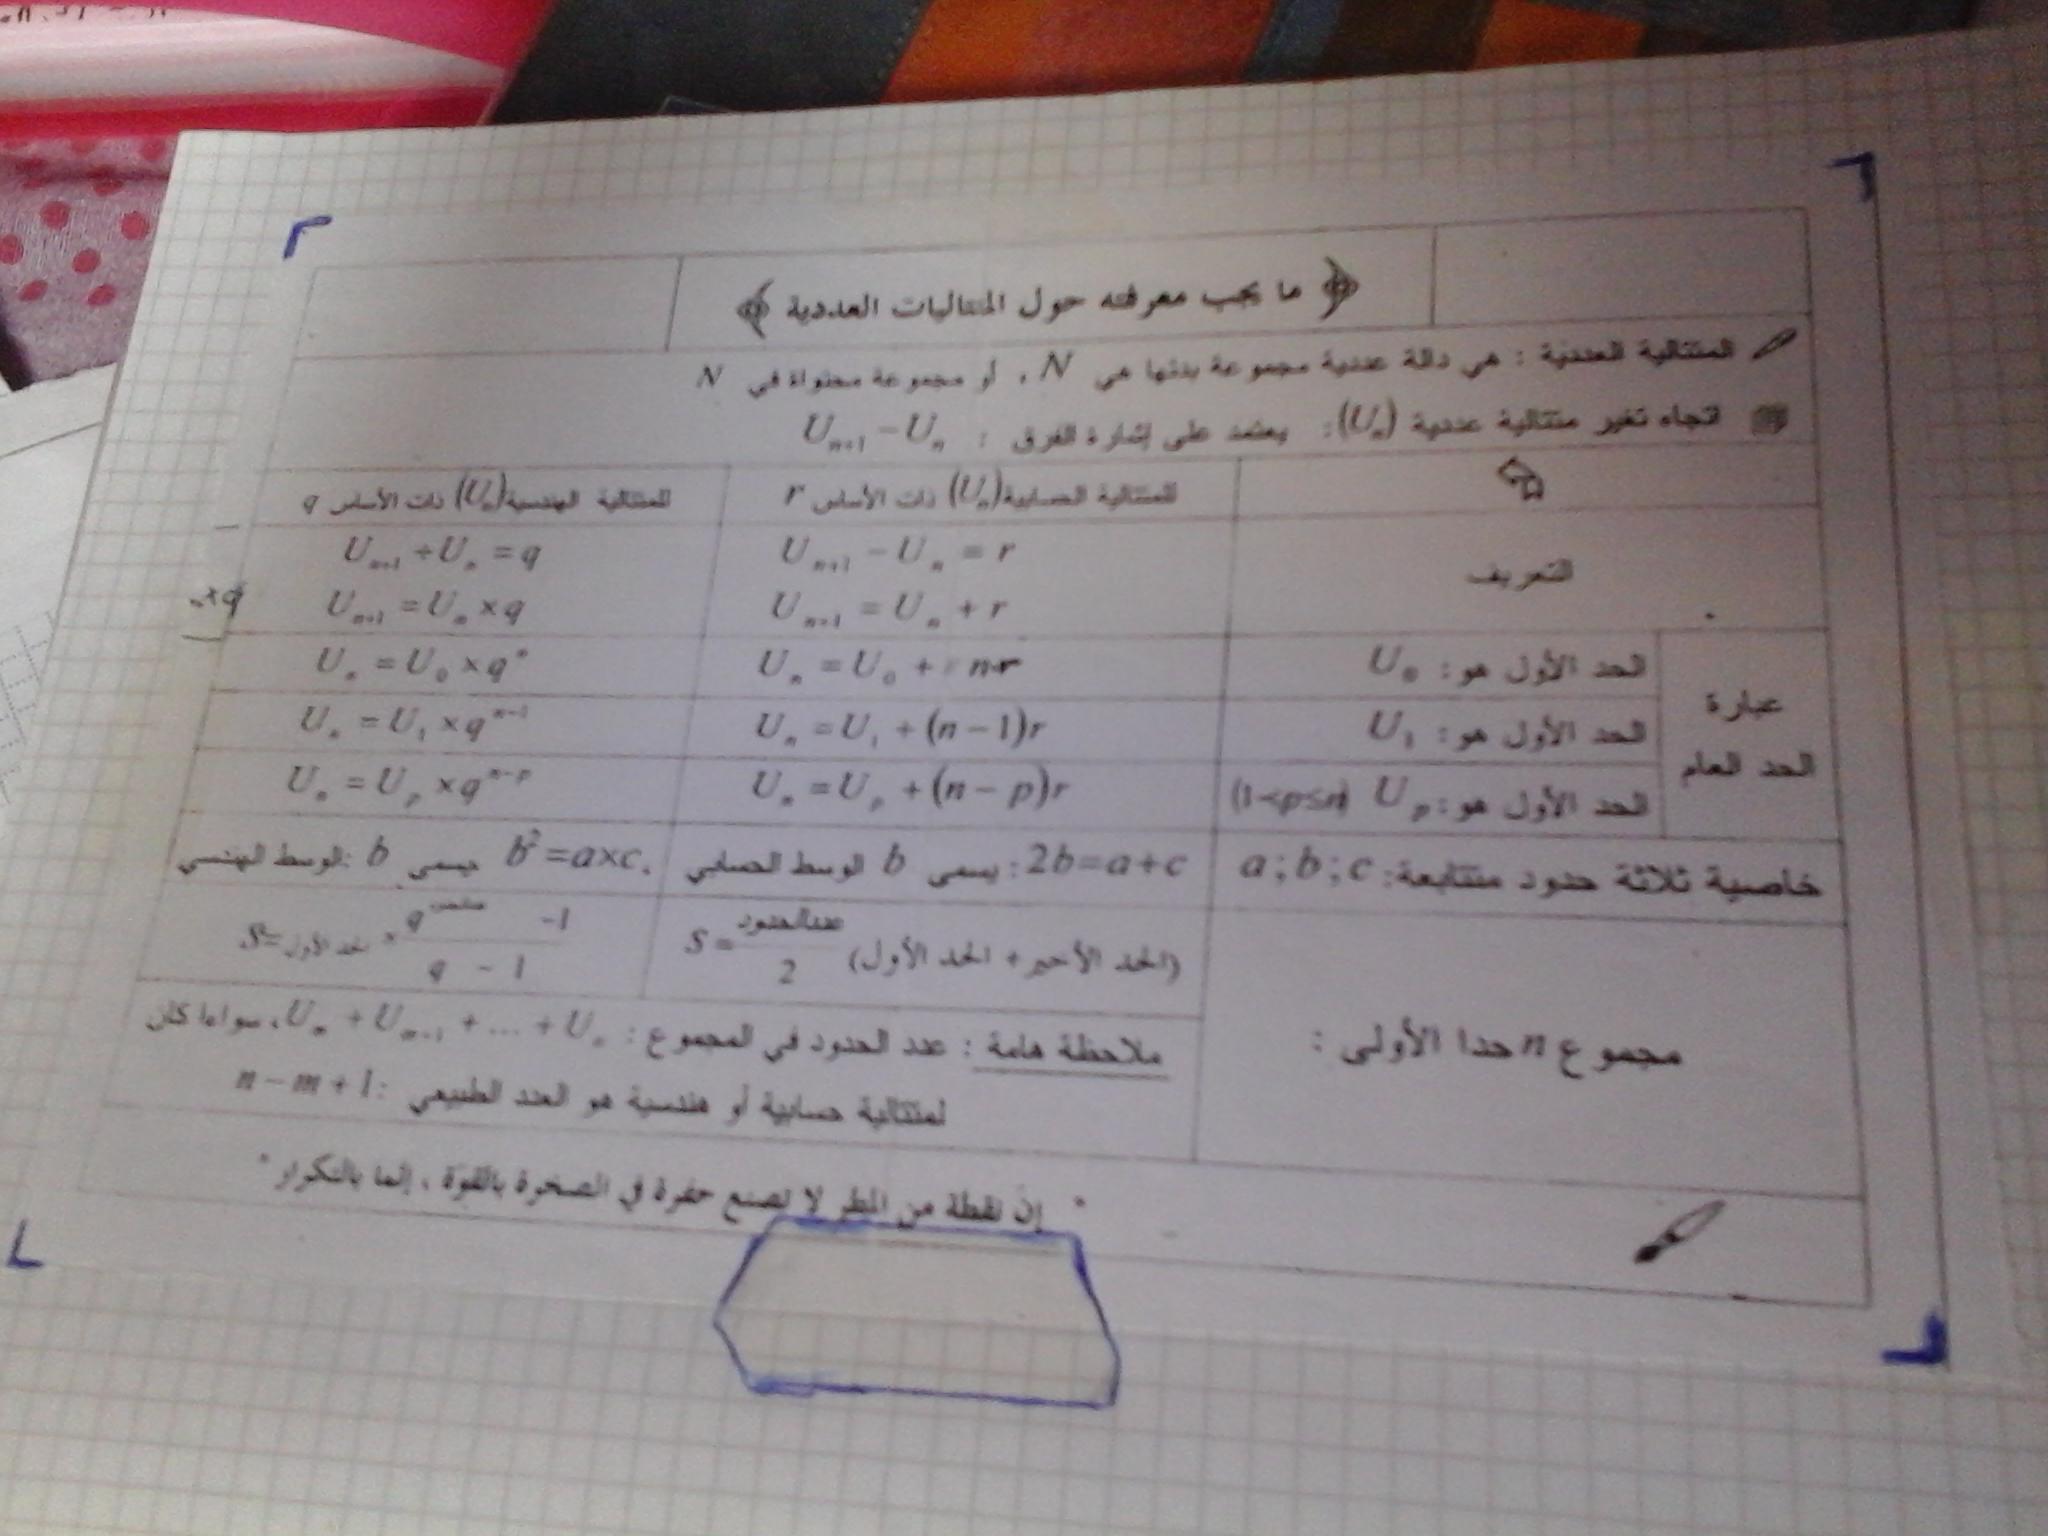 ما يجب معرفته حول المتتاليات العددية
المتتالية العددية : هي دالة عددية مجموعة بدئها هي N ، أو مجموعة محتواة في N
اتجاه تغير متتالية عددية (Uₙ): يعتمد على إشارة الفرق : Uₙ₊₁ − Uₙ
المتتالية الحسابية (Uₙ) ذات الأساس r
المتتالية الهندسية (Uₙ) ذات الأساس q
التعريف
Uₙ₊₁ − Uₙ = r
Uₙ₊₁ ÷ Uₙ = q
Uₙ₊₁ = Uₙ + r
Uₙ₊₁ = Uₙ × q
×q
عبارة
الحد العام
الحد الأول هو: U₀
Uₙ = U₀ + nr
Uₙ = U₀ × qⁿ
الحد الأول هو: U₁
Uₙ = U₁ + (n − 1)r
Uₙ = U₁ × qⁿ⁻¹
الحد الأول هو: Uₚ (1<p≤n)
Uₙ = Uₚ + (n − p)r
Uₙ = Uₚ × qⁿ⁻ᵖ
خاصية ثلاثة حدود متتابعة: a ; b ; c
2b=a+c : يسمى b الوسط الحسابي
b²=a×c. يسمى b :الوسط الهندسي
مجموع n حدا الأولى :
S = عددالحدود / 2 (الحد الأخير + الحد الأول)
S = الحد الأول × (q −1) / (q − 1)
ملاحظة هامة : عدد الحدود في المجموع : Uₘ + Uₘ₊₁ + ... + Uₙ ، سواءا كان
لمتتالية حسابية أو هندسية هو العدد الطبيعي : n − m + 1
" إن نقطة من المطر لا تصنع حفرة في الصخرة بالقوة ، إنما بالتكرار "